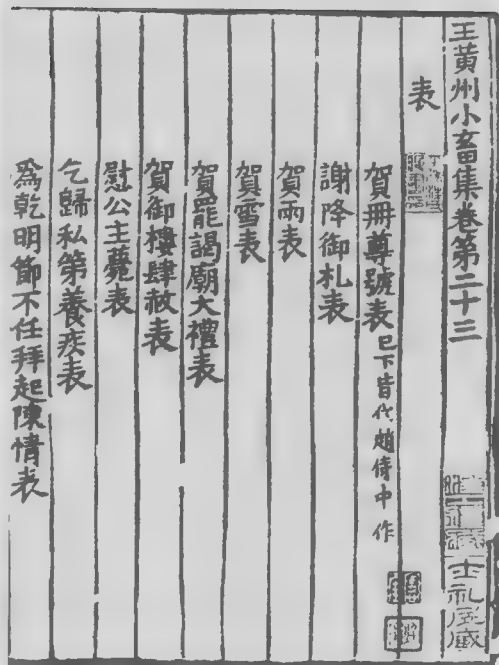 王黃州小畜集卷第二十三
表
賀冊尊號表 已下皆代趙侍中作
謝降御札表
賀雨表
賀雪表
賀罷謁廟大禮表
賀御樓肆赦表
慰公主薨表
乞歸私第養疾表
為乾明節不任拜起陳情表
士礼居藏